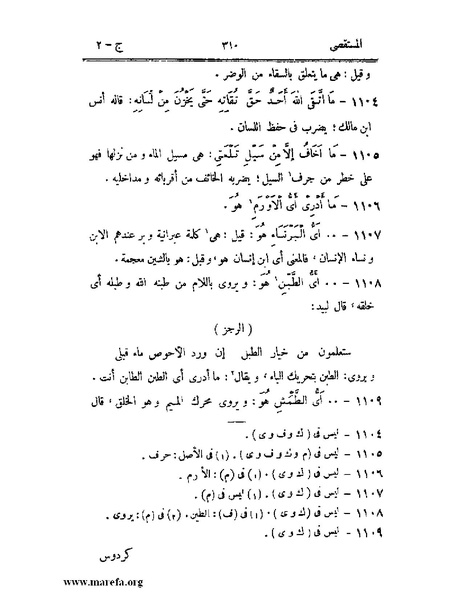 المستقصى ٣١٠ ج - ٢
و قيل : هى ما يتعلق بالسقاء من الوضر .
١١٠٤ - مَا اتَّقَى اللهَ أَحَدٌ حَقَّ تُقَاتِهِ حَتَّى يَخْزُنَ مِنْ لِسَانِهِ : قاله أنس
ابن مالك ؛ يضرب فى حفظ اللسان .
١١٠٥ - مَا أَخَافُ إِلَّا مِنْ سَيْلِ تَلْعَتِى : هى مسيل الماء و من نزلها فهو
على خطر من جرف¹ السيل ؛ يضربه الخائف من أقربائه و مداخليه .
١١٠٦ - مَا أَدْرِى أَىُّ الْأَوْرَمِ¹ هُوَ .
١١٠٧ - ٠٠ أَىُّ الْبَرْنَسَاءِ هُوَ : قيل : هى¹ كلمة عبرانية و بر عندهم الابن
و نساء الإنسان ، فالمعنى أى ابن إنسان هو ، و قيل : هو بالشين معجمة .
١١٠٨ - ٠٠ أَىُّ الطَّبْنِ¹ هُوَ : و يروى باللام من طبنه الله و طبله أى
خلقه ، قال لبيد :
( الرجز )
ستعلمون من خيار الطبل إن ورد الأحوص ماء قبلى
و يروى : الطبن بتحريك الباء ، و يقال² : ما أدرى أى الطبن الطابن أنت .
١١٠٩ - ٠٠ أَىُّ الطَّمْشِ هُوَ : و يروى محرك الميم و هو الخلق ، قال
١١٠٤ - ليس فى ( ك و ف و ى ) .
١١٠٥ - ليس فى ( م و ك و ف و ى ) . (١) فى الأصل : حرف .
١١٠٦ - ليس فى ( ك و ى ) . (١) فى (م) : الأرم .
١١٠٧ - ليس فى ( ك و ى ) . (١) ليس فى (م) .
١١٠٨ - ليس فى ( ك و ى ) . (١) فى (ف) : الطين . (٢) فى (م) : يروى .
١١٠٩ - ليس فى ( ك و ى ) .
كردوس
www.marefa.org